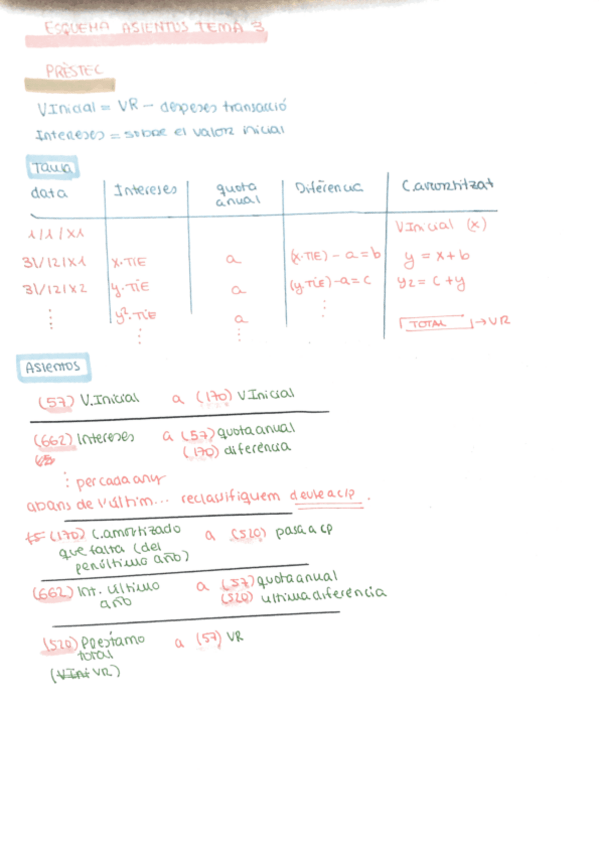 ESQUEMA ASIENTOS TEMA 3
PRÈSTEC
V.Inicial = VR - despeses transacció
Intereses = sobre el valor inicial
Taula
data Intereses quota anual Diferència C.amortitzat
1/1/X1 V Inicial (x)
31/12/X1 x·TIE a (x·TIE) - a = b y = x + b
31/12/X2 y·TIE a (y·TIE) - a = c y2 = c + y
⋮ y²·TIE a ⋮ TOTAL → VR
⋮ ⋮
Asientos
(57) V.Inicial a (170) V Inicial
(662) Intereses a (57) quota anual
(170) diferència
⋮ per cada any
abans de l'últim... reclassifiquem deute a c/p.
(170) C.amortizado a (520) pasa a cp
que falta (del
penúltimo año)
(662) Int. último a (57) quota anual
año (520) ultima diferencia
(520) Préstamo a (57) VR
total
(V.Ini VR)